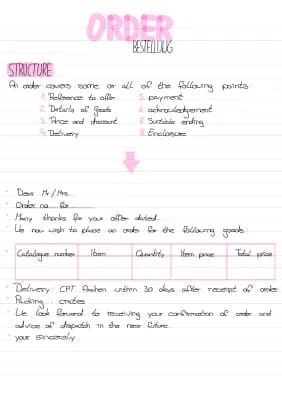 ORDER
BESTELLUNG
STRUCTURE
An order covers some or all of the following points:
1. Reference to offer 5. payment
2. Details of goods 6. acknowledgement
3. Price and discount 7. Suitable ending
4. Delivery 8. Enclosure
Dear Mr / Mrs...
Order no. for ...
Many thanks for your offer dated...
We now wish to place an order for the following goods:
Catalogue number Item Quantity Item price Total price
Delivery: CPT Aachen within 30 days after receipt of order
Packing: crates
We look forward to receiving your confirmation of order and
advice of dispatch in the near future.
your sincerely